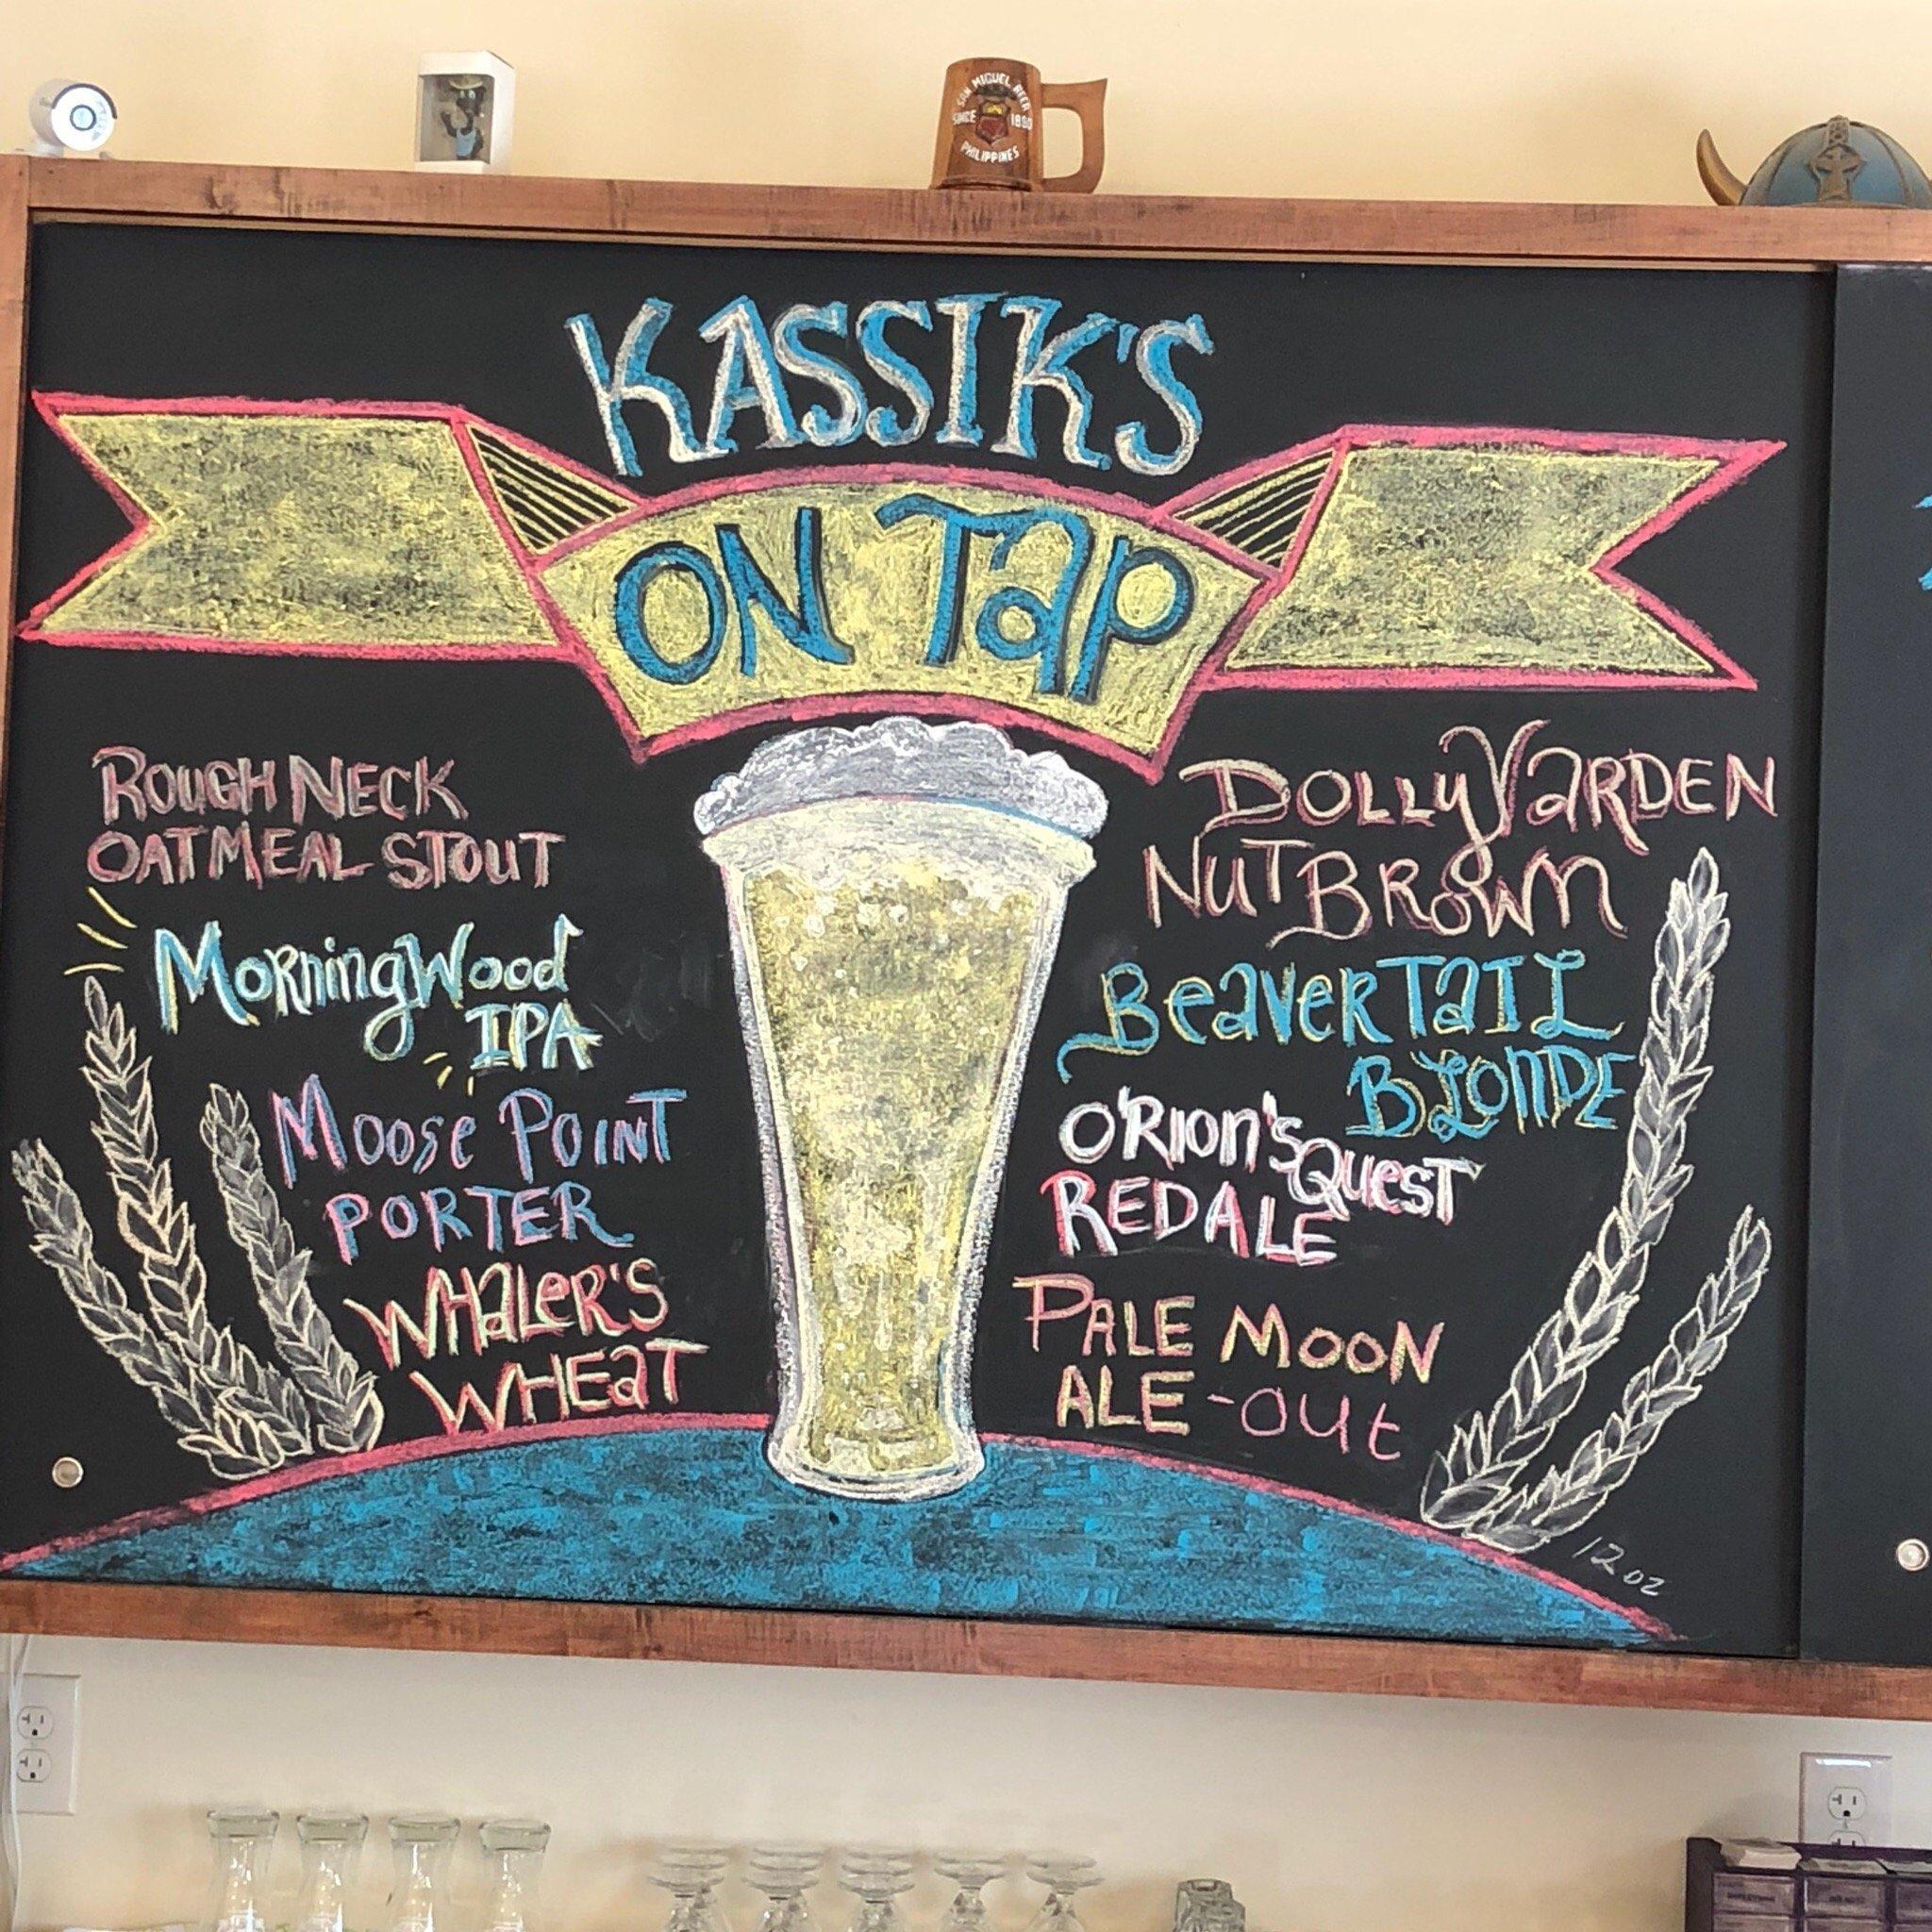 SAN MIGUEL BEER
SINCE 1890
PHILIPPINES
KASSIK'S
ON TaP
ROUGHNECK
OATMEAL STOUT
MORningWood
IPA
Moose POINT
PORTER
WHaLeR'S
WHEaT
DOLLY VaRDEN
NUT BROWN
BeaveRTaIL
BLOnDE
O'RIOn'S QuesT
RED ALE
PALE MOON
ALE -Out
12oz